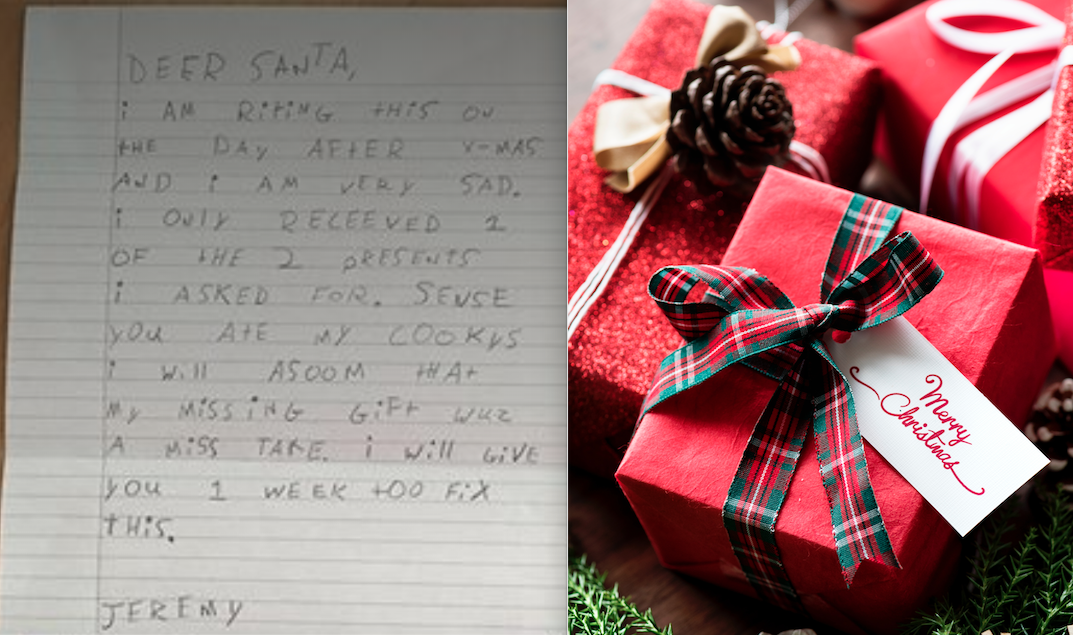 DEER SANTA,
i AM RiTiNG tHiS ON
tHE DAy AFTER X-MAS
AND i AM VERy SAD.
i ONly RECEEVED 1
OF tHE 2 pRESENTS
i ASKED FOR. SENSE
you AtE My COOKyS
i will ASOOM tHAt
My MiSSING GiFt WUZ
A MiSS TAKE. i will GiVE
you 1 WEEK tOO FiX
tHiS.
JEREMY
Merry
Christmas